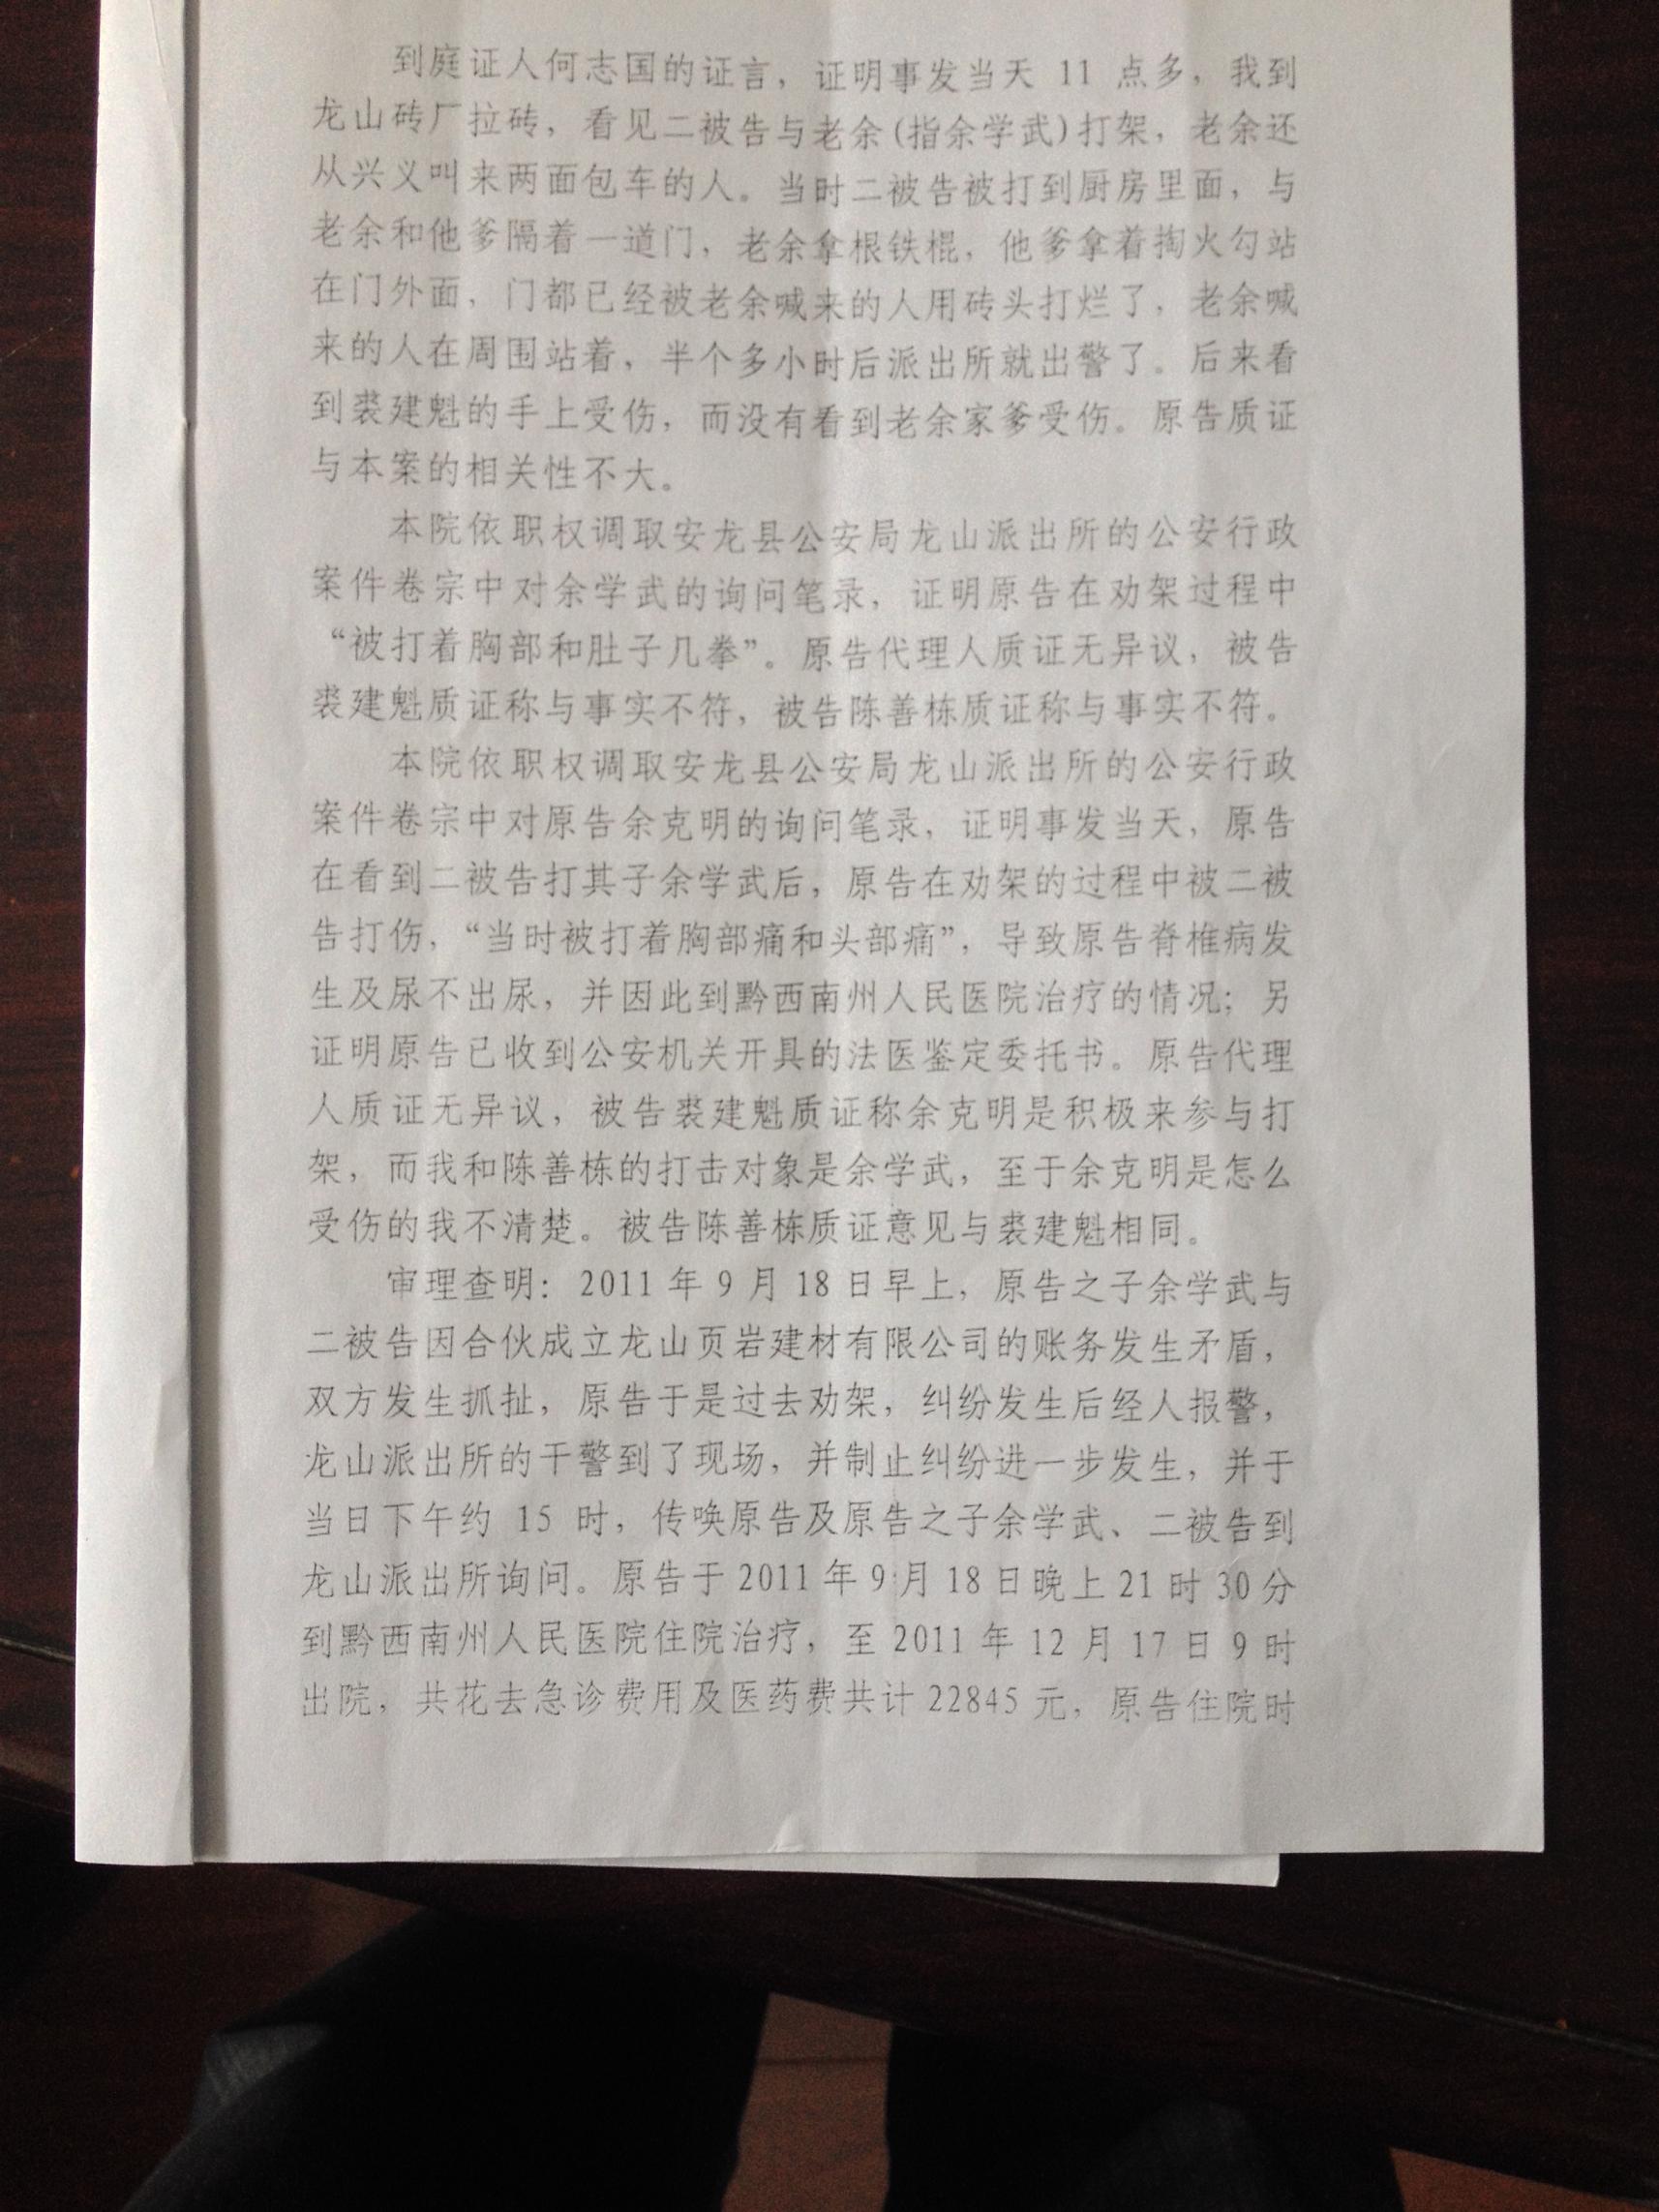 到庭证人何志国的证言，证明事发当天 11 点多，我到
龙山砖厂拉砖，看见二被告与老余(指余学武)打架，老余还
从兴义叫来两面包车的人。当时二被告被打到厨房里面，与
老余和他爹隔着一道门，老余拿根铁棍，他爹拿着掏火勾站
在门外面，门都已经被老余喊来的人用砖头打烂了，老余喊
来的人在周围站着，半个多小时后派出所就出警了。后来看
到裘建魁的手上受伤，而没有看到老余家爹受伤。原告质证
与本案的相关性不大。
本院依职权调取安龙县公安局龙山派出所的公安行政
案件卷宗中对余学武的询问笔录，证明原告在劝架过程中
“被打着胸部和肚子几拳”。原告代理人质证无异议，被告
裘建魁质证称与事实不符，被告陈善栋质证称与事实不符。
本院依职权调取安龙县公安局龙山派出所的公安行政
案件卷宗中对原告余克明的询问笔录，证明事发当天，原告
在看到二被告打其子余学武后，原告在劝架的过程中被二被
告打伤，“当时被打着胸部痛和头部痛”，导致原告脊椎病发
生及尿不出尿，并因此到黔西南州人民医院治疗的情况；另
证明原告已收到公安机关开具的法医鉴定委托书。原告代理
人质证无异议，被告裘建魁质证称余克明是积极来参与打
架，而我和陈善栋的打击对象是余学武，至于余克明是怎么
受伤的我不清楚。被告陈善栋质证意见与裘建魁相同。
审理查明：2011 年 9 月 18 日早上，原告之子余学武与
二被告因合伙成立龙山页岩建材有限公司的账务发生矛盾，
双方发生抓扯，原告于是过去劝架，纠纷发生后经人报警，
龙山派出所的干警到了现场，并制止纠纷进一步发生，并于
当日下午约 15 时，传唤原告及原告之子余学武、二被告到
龙山派出所询问。原告于 2011 年 9 月 18 日晚上 21 时 30 分
到黔西南州人民医院住院治疗，至 2011 年 12 月 17 日 9 时
出院，共花去急诊费用及医药费共计 22845 元，原告住院时